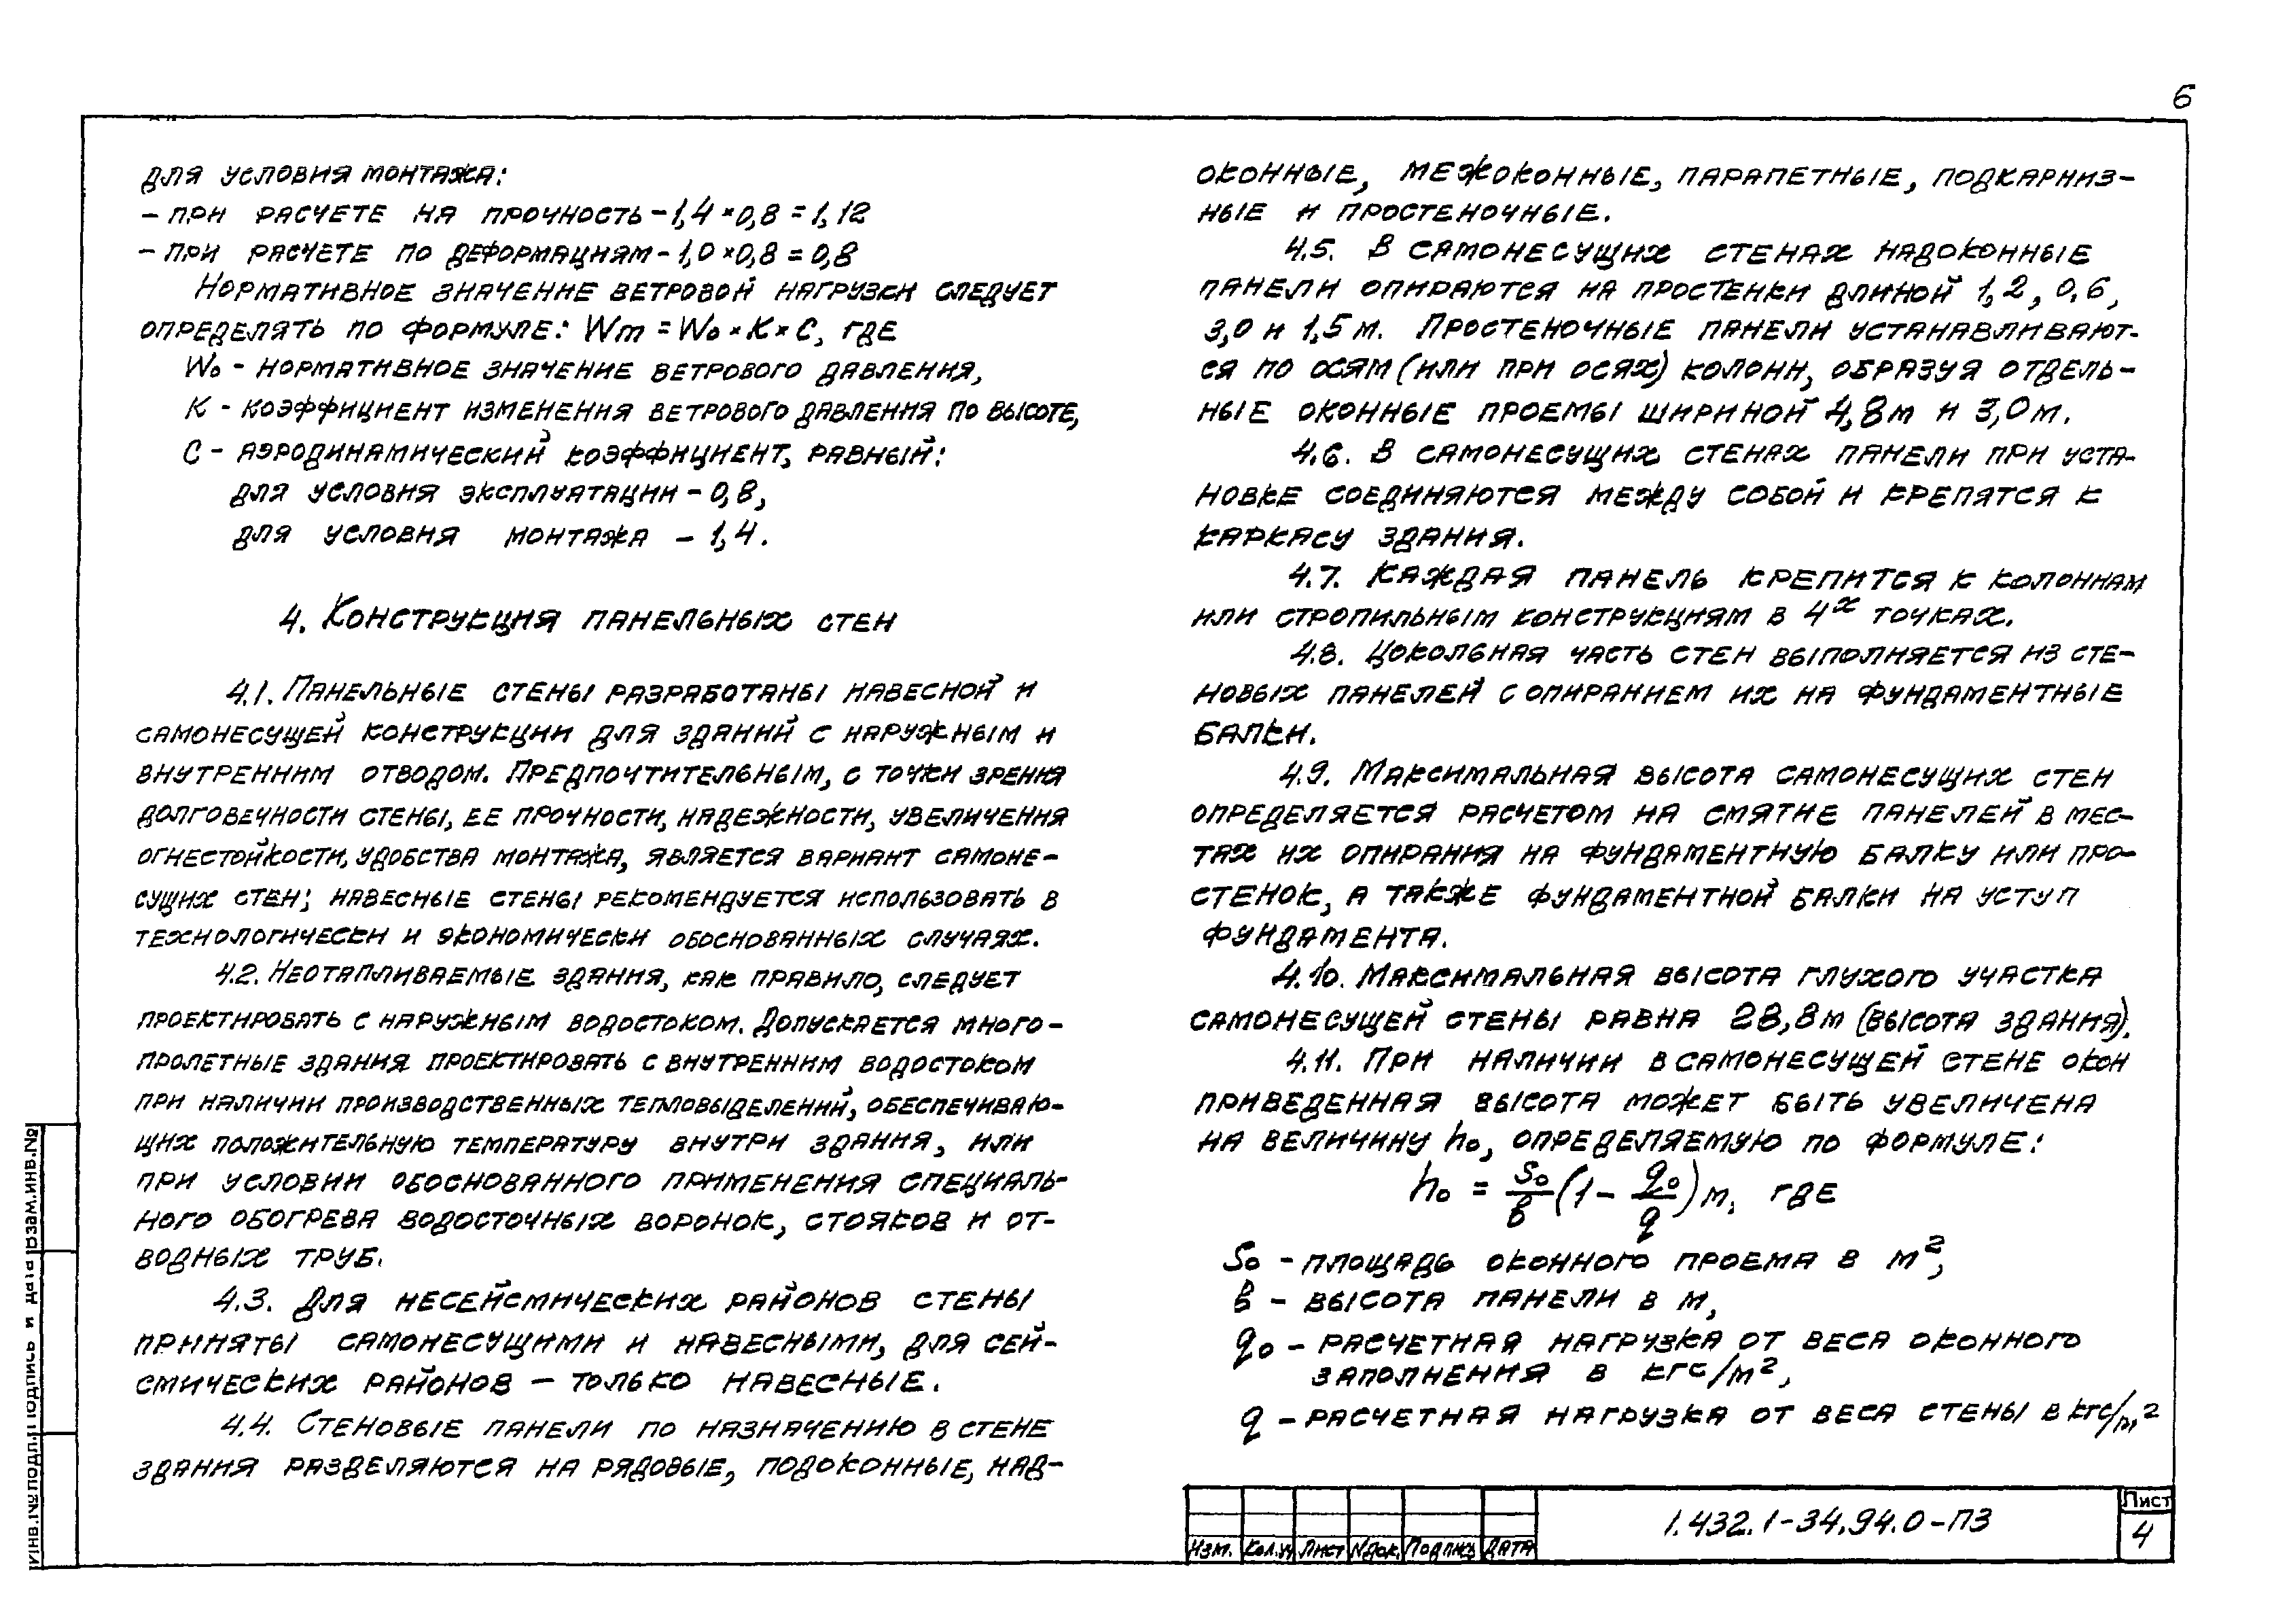 6
для условия монтажа:
- при расчете на прочность - 1,4 × 0,8 = 1,12
- при расчете по деформациям - 1,0 × 0,8 = 0,8
Нормативное значение ветровой нагрузки следует
определять по формуле: Wm = Wo × K × C, где
Wo - нормативное значение ветрового давления,
K - коэффициент изменения ветрового давления по высоте,
C - аэродинамический коэффициент, равный:
для условия эксплуатации - 0,8,
для условия монтажа - 1,4.
4. Конструкция панельных стен
4.1. Панельные стены разработаны навесной и
самонесущей конструкции для зданий с наружным и
внутренним отводом. Предпочтительным, с точки зрения
долговечности стены, ее прочности, надежности, увеличения
огнестойкости, удобства монтажа, является вариант самоне-
сущих стен; навесные стены рекомендуется использовать в
технологически и экономически обоснованных случаях.
4.2. Неотапливаемые здания, как правило, следует
проектировать с наружным водостоком. Допускается много-
пролетные здания проектировать с внутренним водостоком
при наличии производственных тепловыделений, обеспечиваю-
щих положительную температуру внутри здания, или
при условии обоснованного применения специаль-
ного обогрева водосточных воронок, стояков и от-
водных труб.
4.3. Для несейсмических районов стены
приняты самонесущими и навесными, для сей-
смических районов – только навесные.
4.4. Стеновые панели по назначению в стене
здания разделяются на рядовые, подоконные, над-
оконные, межоконные, парапетные, подкарниз-
ные и простеночные.
4.5. В самонесущих стенах надоконные
панели опираются на простенки длиной 1,2, 0,6,
3,0 и 1,5 м. Простеночные панели устанавливают-
ся по осям (или при осях) колонн, образуя отдель-
ные оконные проемы шириной 4,8 м и 3,0 м.
4.6. В самонесущих стенах панели при уста-
новке соединяются между собой и крепятся к
каркасу здания.
4.7. Каждая панель крепится к колоннам
или стропильным конструкциям в 4х точках.
4.8. Цокольная часть стен выполняется из сте-
новых панелей с опиранием их на фундаментные
балки.
4.9. Максимальная высота самонесущих стен
определяется расчетом на смятие панелей в мес-
тах их опирания на фундаментную балку или про-
стенок, а также фундаментной балки на уступ
фундамента.
4.10. Максимальная высота глухого участка
самонесущей стены равна 28,8 м (высота здания).
4.11. При наличии в самонесущей стене окон
приведенная высота может быть увеличена
на величину ho, определяемую по формуле:
ho = So/в (1 - qo/q) м, где
So - площадь оконного проема в м²,
в - высота панели в м,
qo - расчетная нагрузка от веса оконного
заполнения в кгс/м²,
q - расчетная нагрузка от веса стены в кгс/м²
Инв.№подл. Подпись и дата Взам.инв.№
Изм. Кол.уч Лист Nдок. Подпись Дата
1.432.1-34.94.0-ПЗ
Лист
4